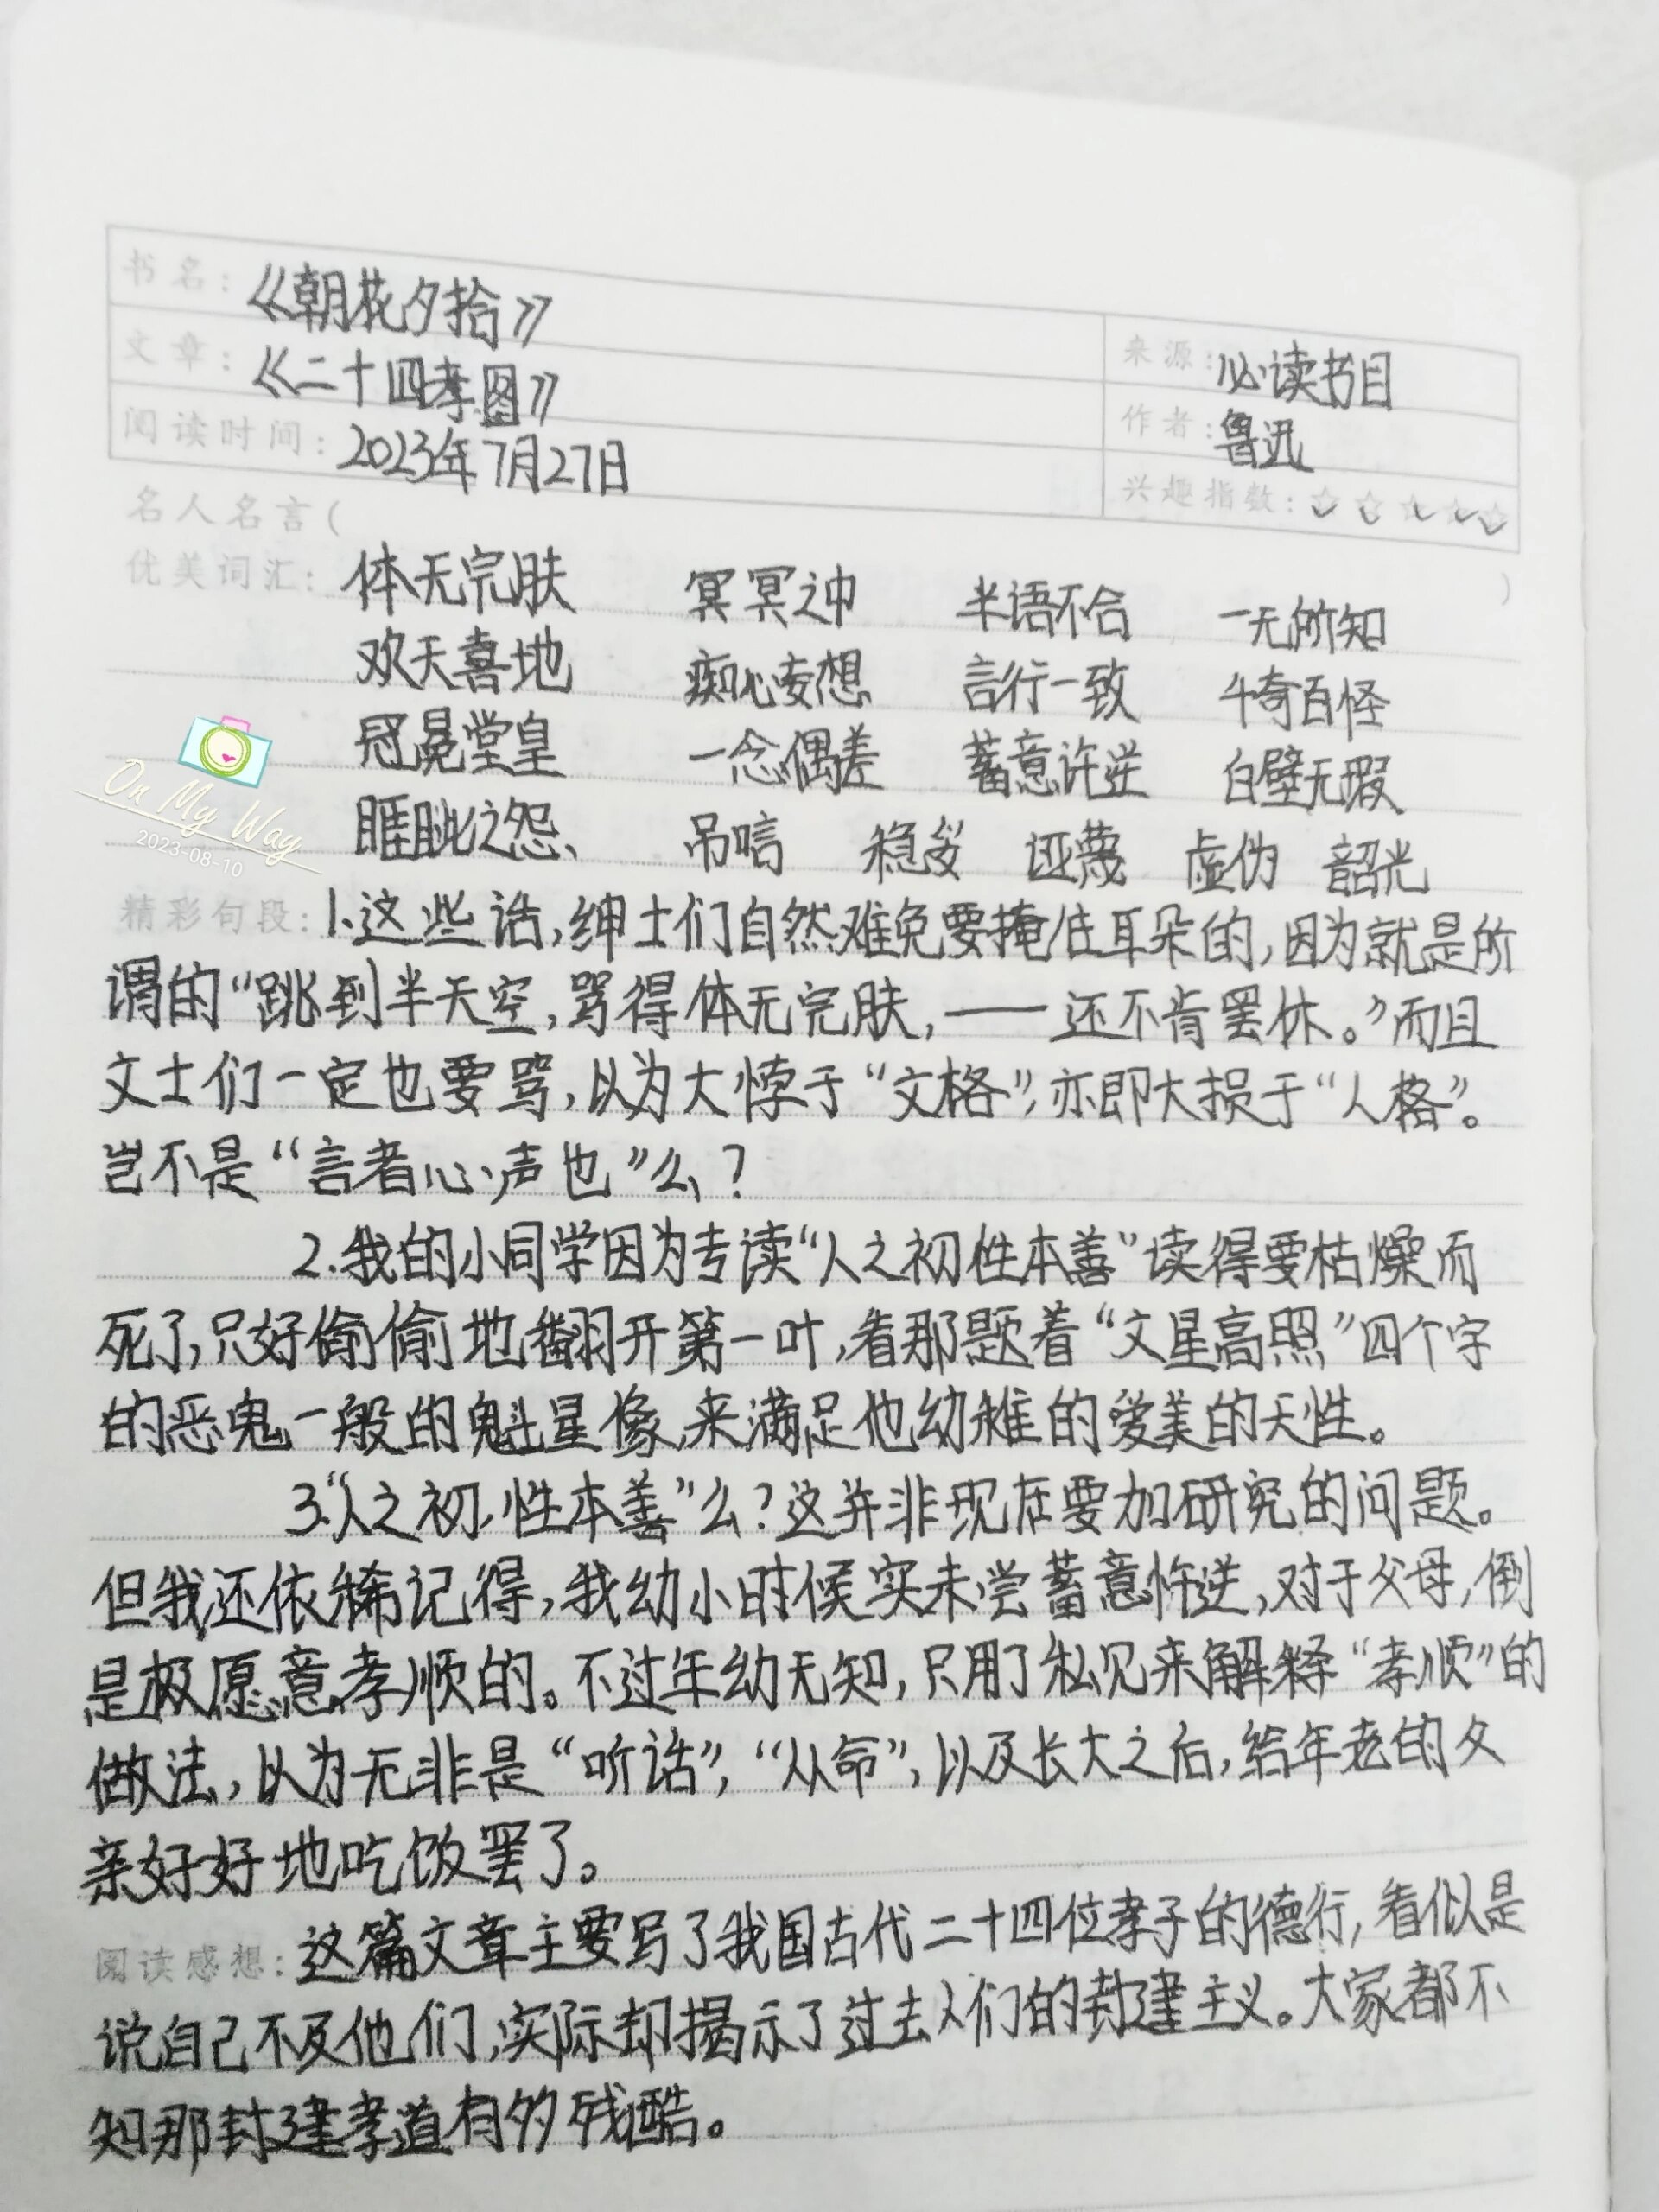 书名：《朝花夕拾》
来源：必读书目
文章：《二十四孝图》
作者：鲁迅
阅读时间：2023年7月27日
兴趣指数：☆☆☆☆☆
名人名言（ ）
优美词汇：体无完肤 冥冥之中 半语不合 一无所知
欢天喜地 痴心妄想 言行一致 千奇百怪
冠冕堂皇 一念偶差 蓄意许逆 白璧无瑕
睚眦之怨 吊唁 稳妥 诬蔑 虚伪 韶光
On My Way
2023-08-10
精彩句段：1.这些话，绅士们自然难免要掩住耳朵的，因为就是所
谓的“跳到半天空，骂得体无完肤，——还不肯罢休。”而且
文士们一定也要骂，以为大悖于“文格”，亦即大损于“人格”。
岂不是“言者心声也”么？
2.我的小同学因为专读“人之初性本善”读得要枯燥而
死了，只好偷偷地翻开第一叶，看那题着“文星高照”四个字
的恶鬼一般的魁星像，来满足他幼稚的爱美的天性。
3.“人之初，性本善”么？这并非现在要加研究的问题。
但我还依稀记得，我幼小时候实未尝蓄意忤逆，对于父母，倒
是极愿意孝顺的。不过年幼无知，只用了私见来解释“孝顺”的
做法，以为无非是“听话”，“从命”，以及长大之后，给年老的父
亲好好地吃饭罢了。
阅读感想：这篇文章主要写了我国古代二十四位孝子的德行，看似是
说自己不及他们，实际却揭示了过去人们的封建主义。大家都不
知那封建孝道有多残酷。